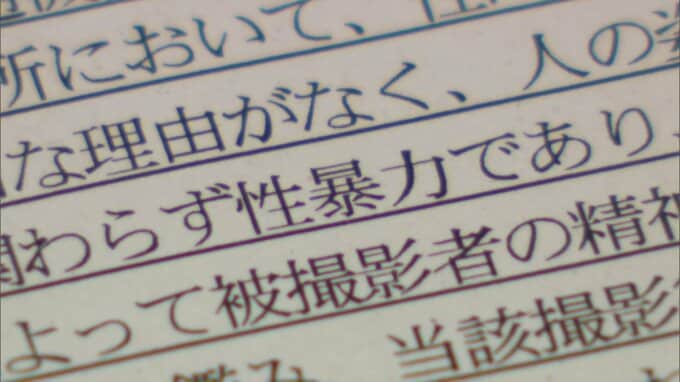 所において、性
な理由がなく、人の姿
関わらず性暴力であり、
よって被撮影者の精神
鑑み、当該撮影